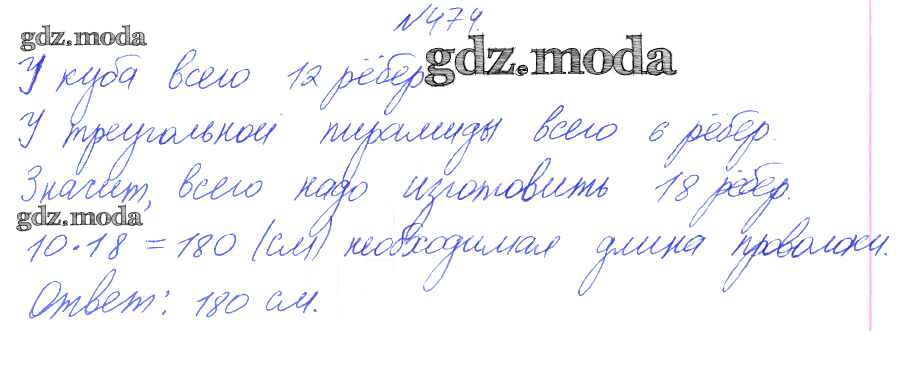 №474.
gdz.moda
У куба всего 12 рёбер
gdz.moda
У треугольной пирамиды всего 6 рёбер.
Значит, всего надо изготовить 18 рёбер.
gdz.moda
10·18 = 180 (см) необходимая длина проволоки.
Ответ: 180 см.